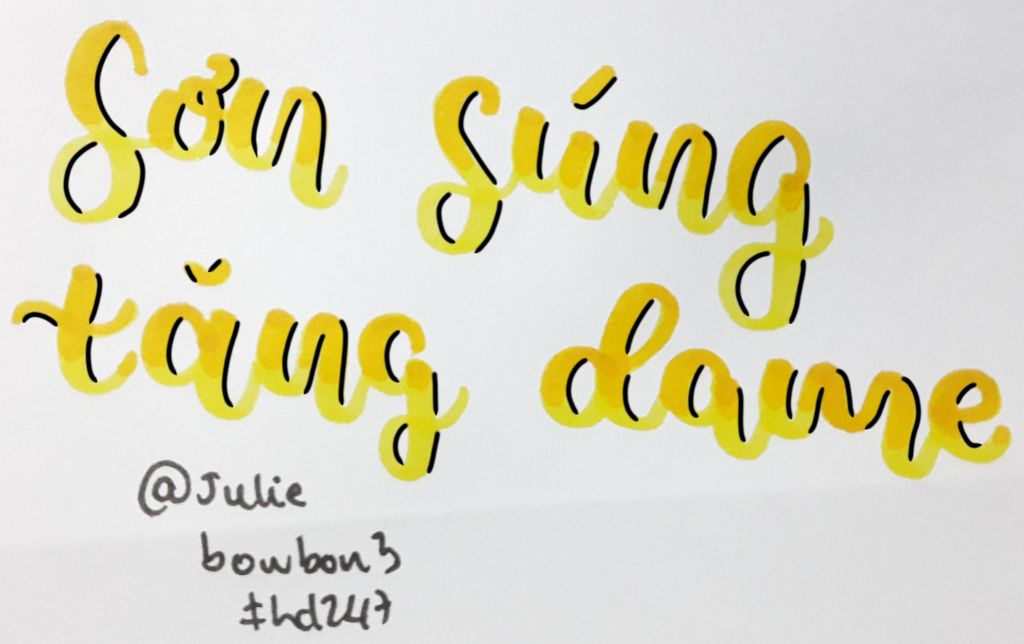 Sơn súng
tăng dame
@Julie
bowbon3
#hd247